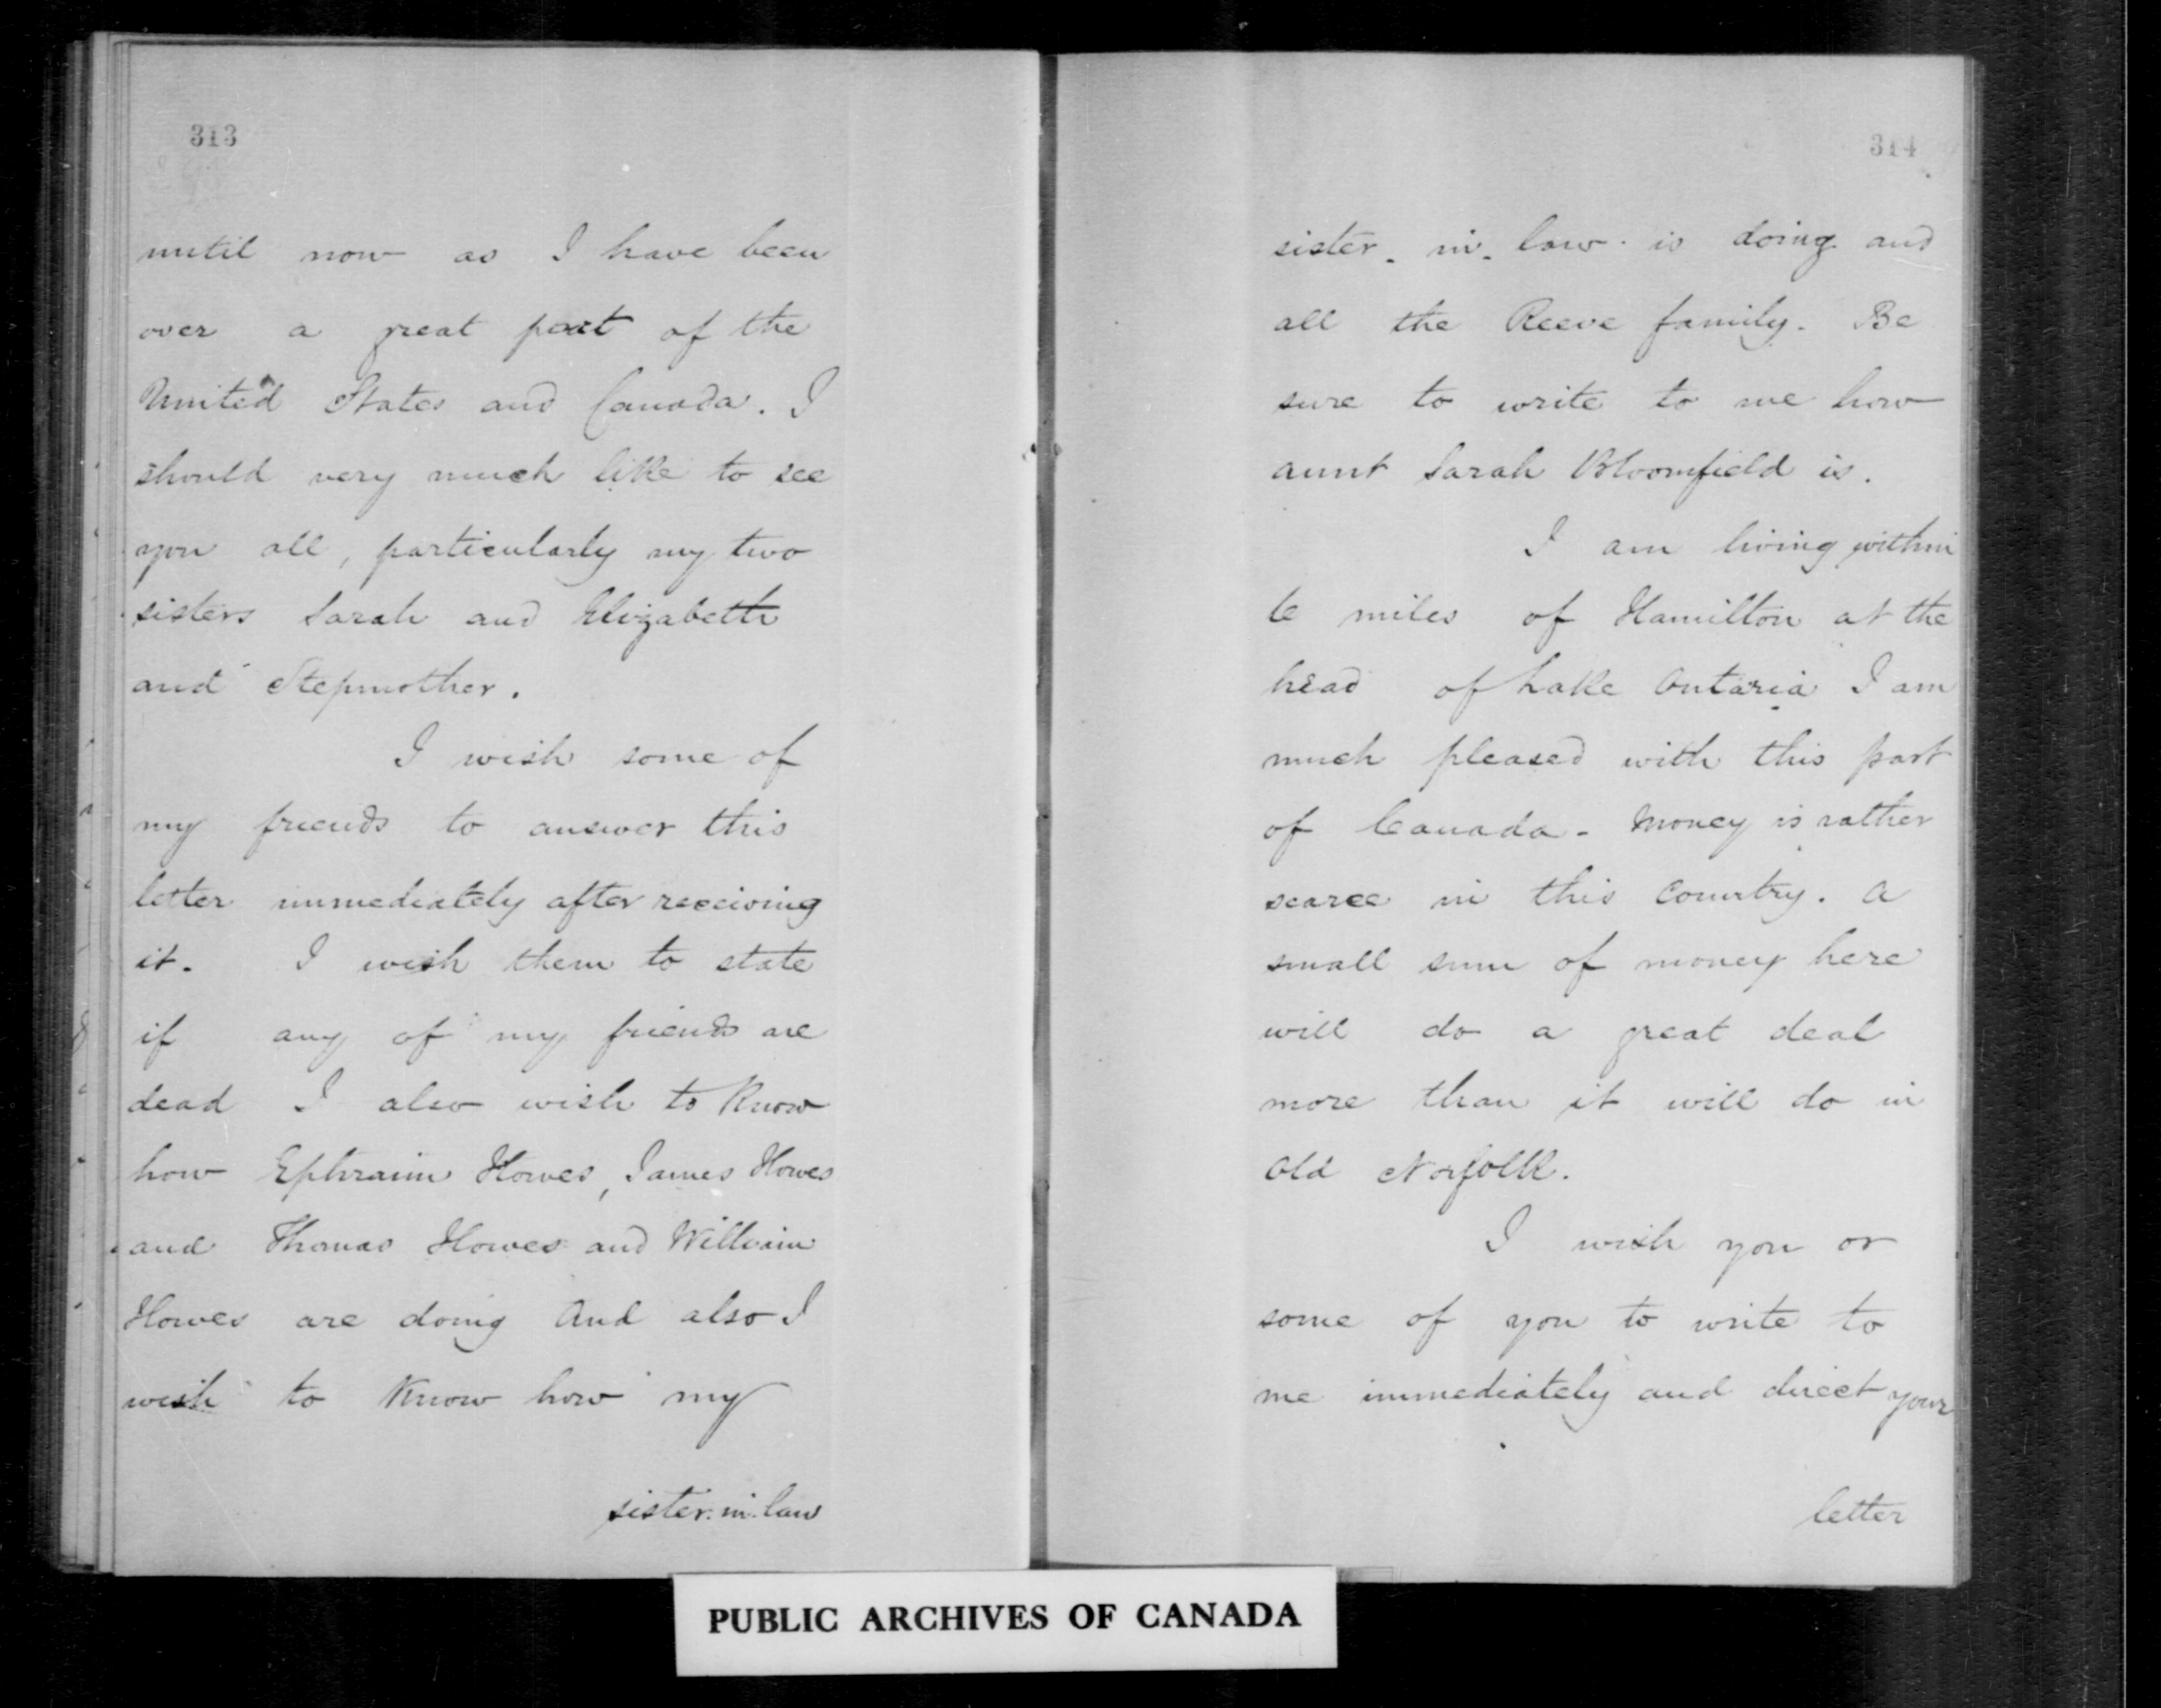 313
until now as I have been
over a great part of the
United States and Canada. I
should very much like to see
you all, particularly my two
sisters Sarah and Elizabeth
and Stepmother.
I wish some of
my friends to answer this
letter immediately after receiving
it. I wish them to state
if any of my friends are
dead I also wish to know
how Ephraim Howes, James Howes
and Thomas Howes and William
Howes are doing And also I
wish to know how my
sister-in-law
314
sister-in-law is doing and
all the Reeve family. Be
sure to write to me how
aunt Sarah Bloomfield is.
I am living within
6 miles of Hamilton at the
head of Lake Ontaria I am
much pleased with this part
of Canada - Money is rather
scarce in this Country. A
small sum of money here
will do a great deal
more than it will do in
Old Norfolk.
I wish you or
some of you to write to
me immediately and direct your
letter
PUBLIC ARCHIVES OF CANADA